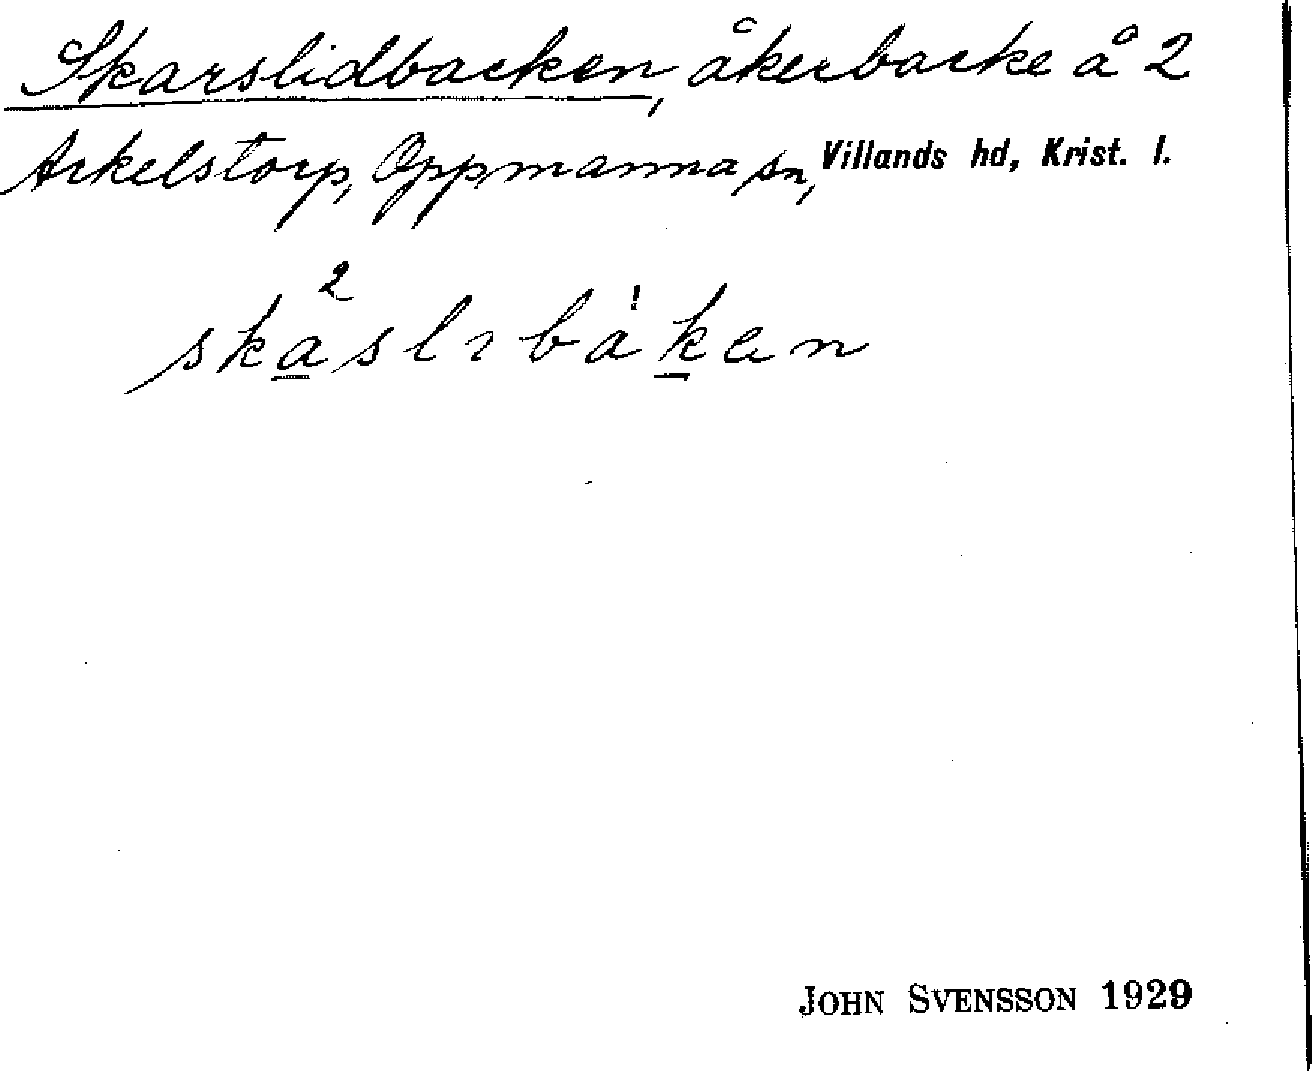 Skarslidbacken, åkerbacke å 2
Arkelstorp, Oppmanna sn, Villands hd, Krist. l.
JOHN SVENSSON 1929